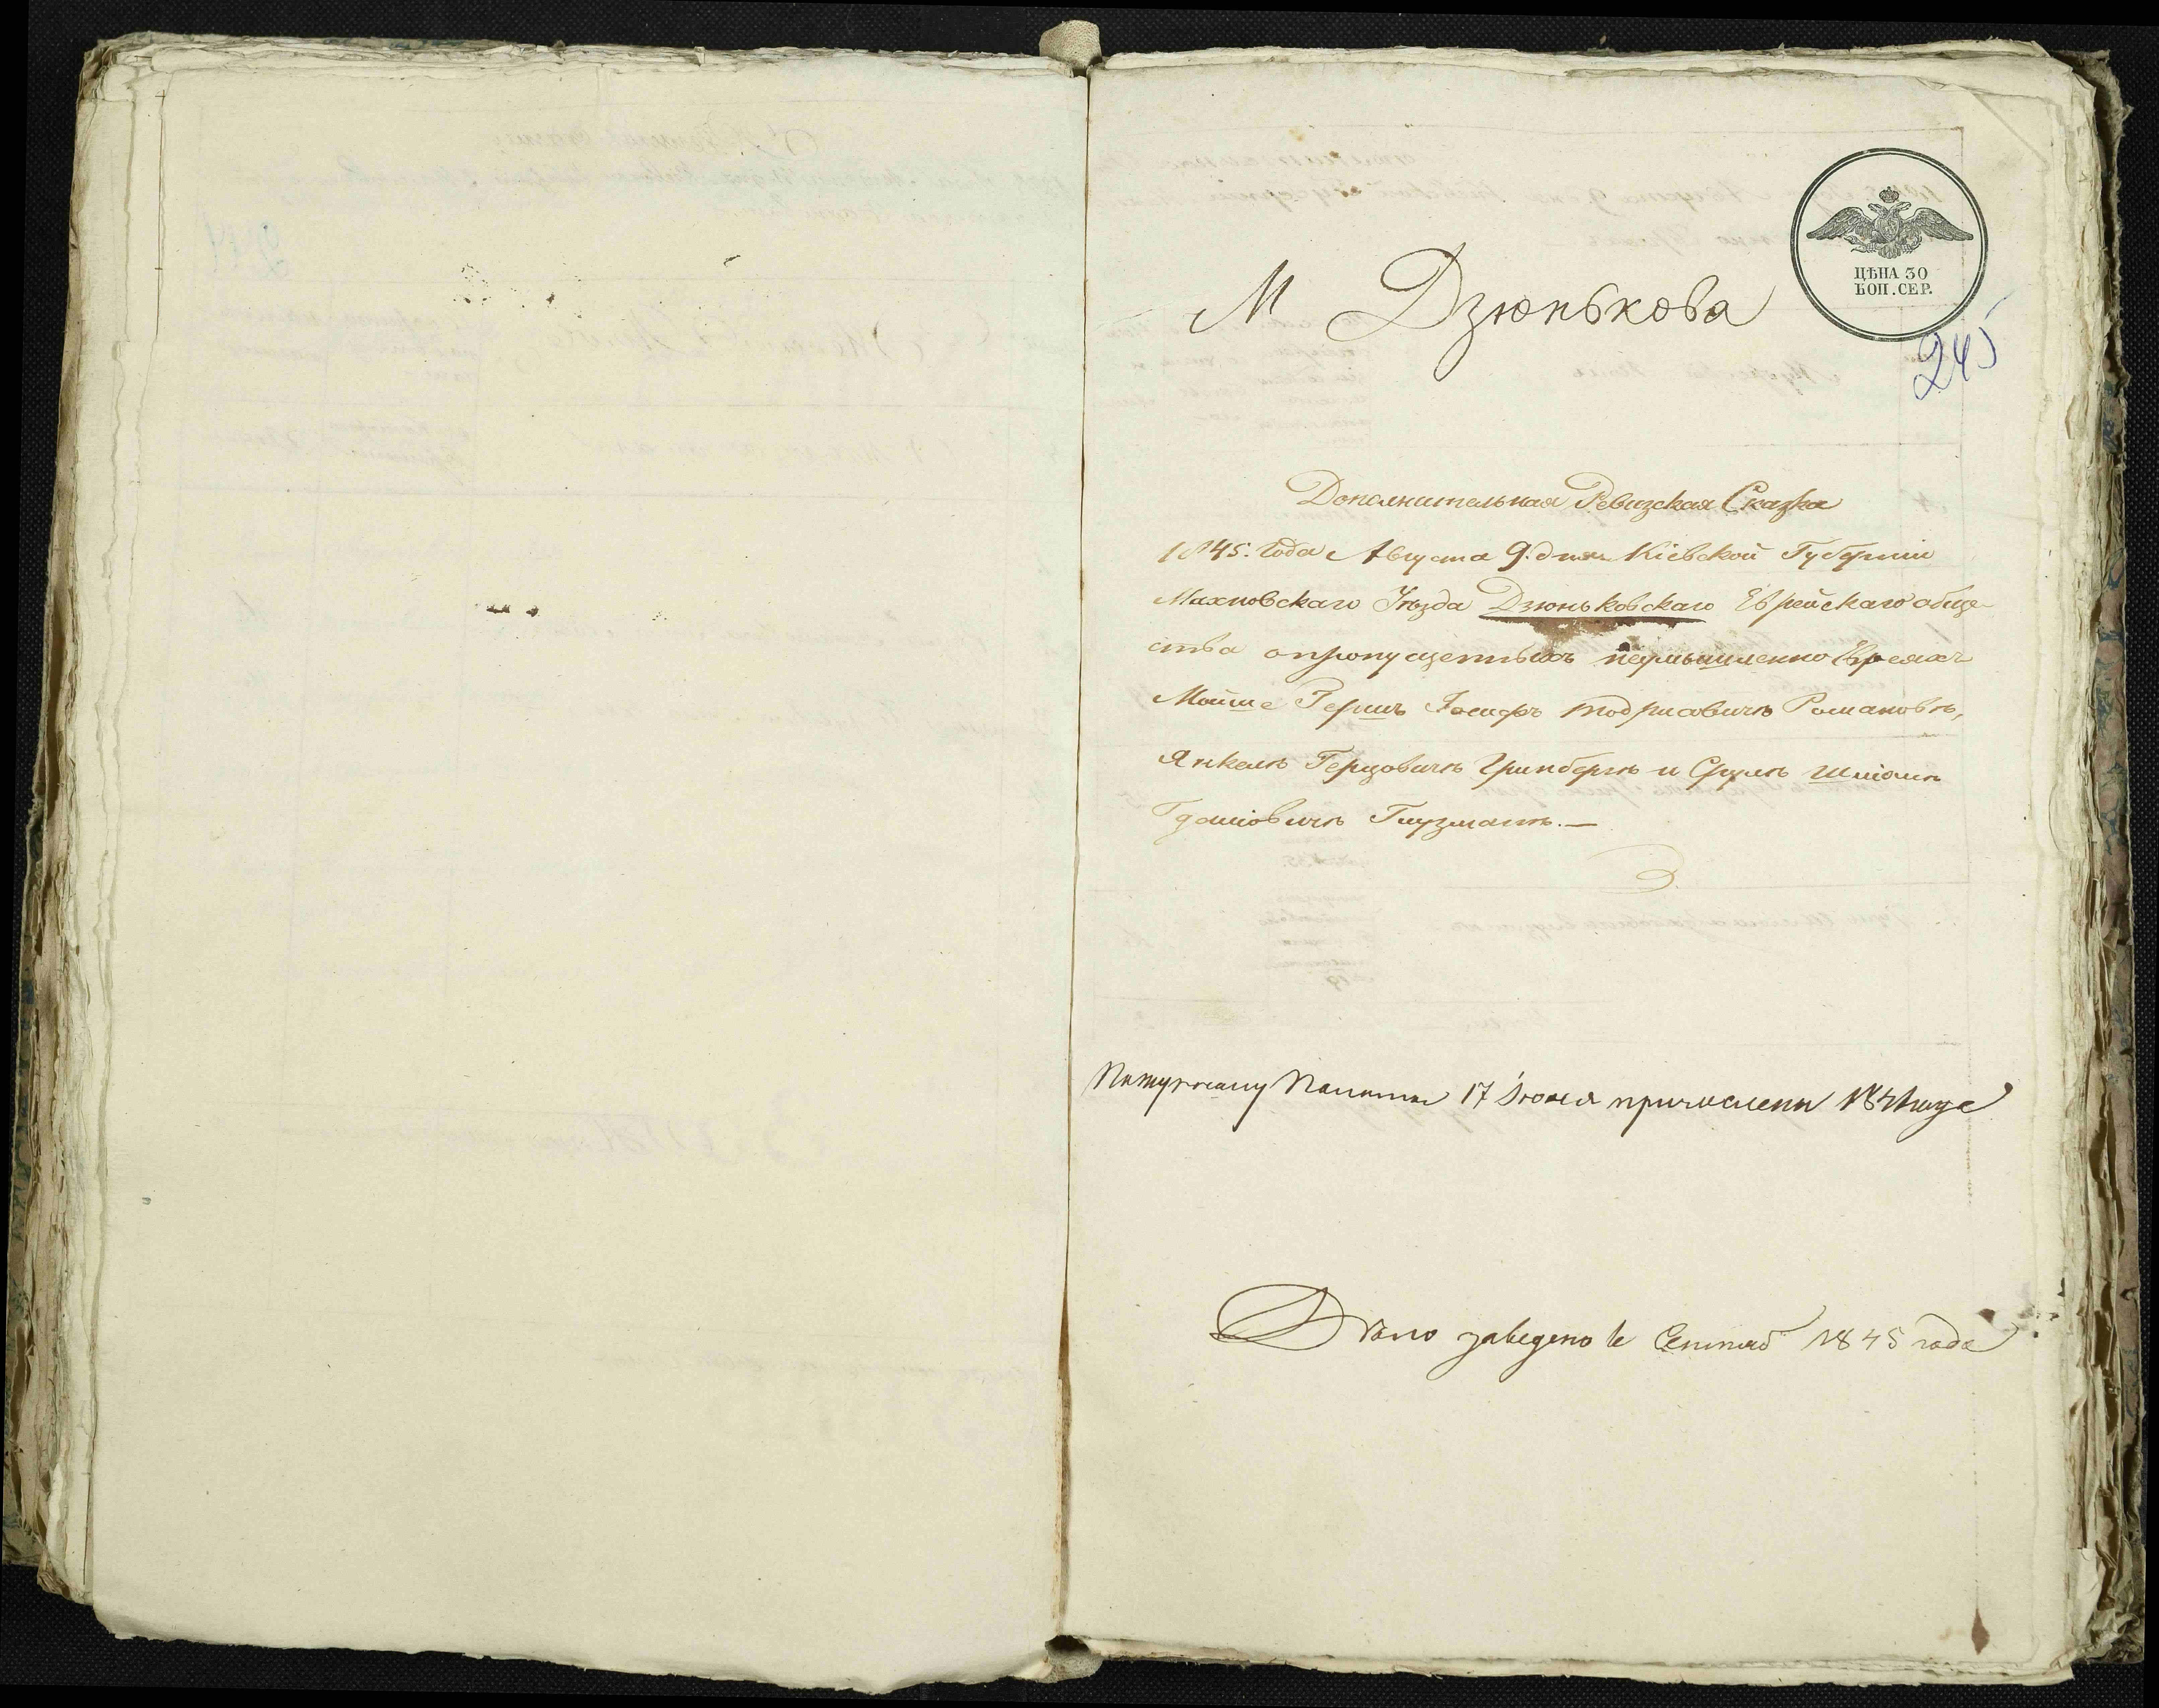 ЦѢНА 30
КОП. СЕР.
М Дзюнькова
245
Дополнительная Ревизская Сказка
1845. Года Августа 9. дня Кіевской Губерніи
Махновскаго Уѣзда Дзюньковскаго Еврейскаго обще-
ства о пропущенныхъ неумышленно Евреяхъ
Мойше Гершъ Іосифъ Тодрисовичъ Романовъ,
Янкель Герцовичъ Гринбергъ и Сруль Шліома
Глузманъ. —
17 Іюня причислены
Дѣло заведено в Сентяб 1845 года